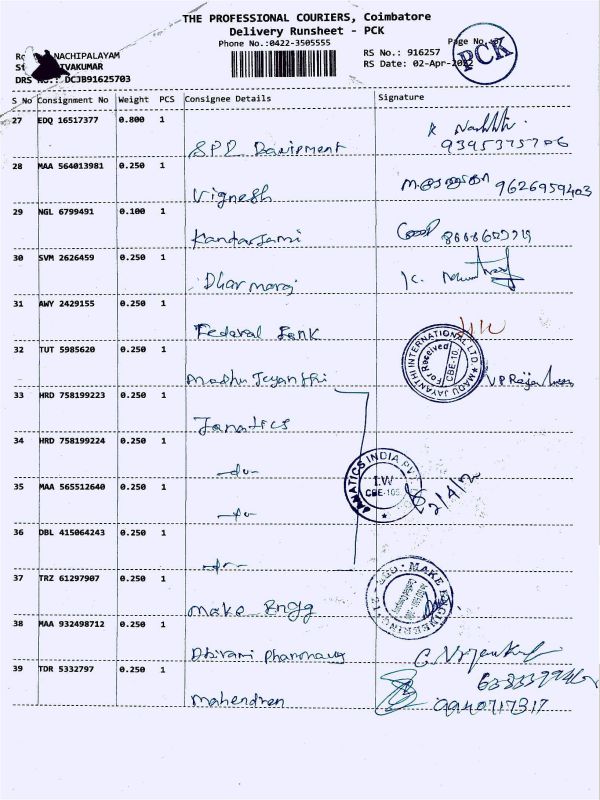 THE PROFESSIONAL COURIERS, Coimbatore
Delivery Runsheet - PCK
Phone No.:0422-3505555
Page No.
PCK
RS No.: 916257
RS Date: 02-Apr-2022
NACHIPALAYAM
IVAKUMAR
DRS No.: DCJB91625703
S No Consignment No Weight PCS Consignee Details Signature
27 EDQ 16517377 0.800 1
28 MAA 564013981 0.250 1
Vignesh 9626959403
29 NGL 6799491 0.100 1
30 SVM 2626459 0.250 1
Dharmaraj K.
31 AWY 2429155 0.250 1
Federal Bank
32 TUT 5985620 0.250 1
MADU JAYANTHI INTERNATIONAL LTD
For Received
CBE-10
Madhu Jeyanthi
33 HRD 758199223 0.250 1
Janatics
34 HRD 758199224 0.250 1
-do-
35 MAA 565512640 0.250 1
JANATICS INDIA PVT
I.W
CBE-105
2/4/22
-do-
36 DBL 415064243 0.250 1
-do-
37 TRZ 61297907 0.250 1
MAKE ENGINEERING
Make Engg
38 MAA 932498712 0.250 1
39 TDR 5332797 0.250 1
Mahendren 9940717317